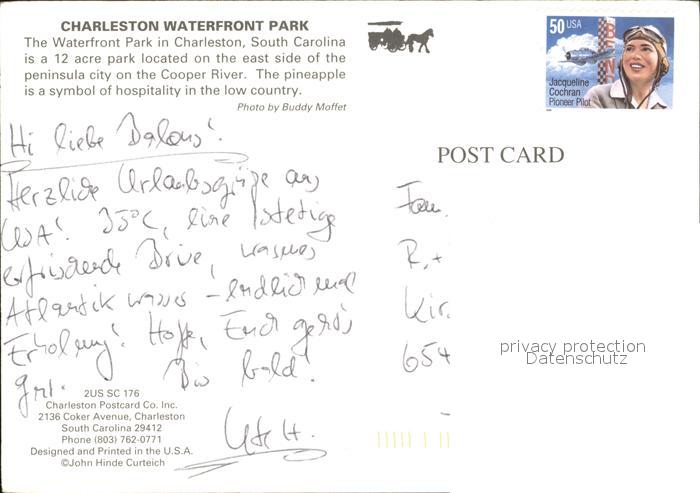 CHARLESTON WATERFRONT PARK
The Waterfront Park in Charleston, South Carolina
is a 12 acre park located on the east side of the
peninsula city on the Cooper River. The pineapple
is a symbol of hospitality in the low country.
Photo by Buddy Moffet
50 USA
Jacqueline
Cochran
Pioneer Pilot
POST CARD
Hi liebe
Herzliche Urlaubsgrüße aus
USA! 35°C, eine
erfrischende Brise, warmes
Atlantikwasser - endlich mal
Erholung! Hoffe, Euch geht's
gut. Bis bald!
Fam.
R.
Kir.
654
privacy protection
Datenschutz
2US SC 176
Charleston Postcard Co. Inc.
2136 Coker Avenue, Charleston
South Carolina 29412
Phone (803) 762-0771
Designed and Printed in the U.S.A.
©John Hinde Curteich